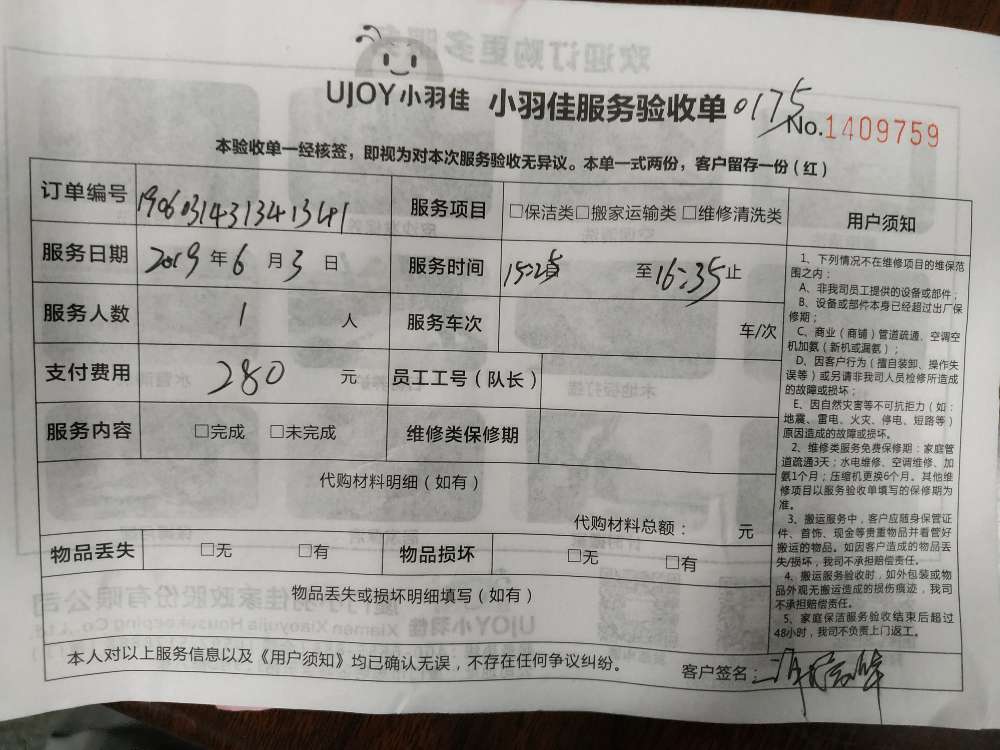 UJOY小羽佳 小羽佳服务验收单
0175
No.1409759
本验收单一经核签，即视为对本次服务验收无异议。本单一式两份，客户留存一份（红）
订单编号 服务项目 □保洁类□搬家运输类□维修清洗类
服务日期 2019年6月3日 服务时间 至16:35止
服务人数 1 人 服务车次 车/次
支付费用 280 元 员工工号（队长）
服务内容 □完成 □未完成 维修类保修期
代购材料明细（如有）
代购材料总额： 元
物品丢失 □无 □有 物品损坏 □无 □有
物品丢失或损坏明细填写（如有）
本人对以上服务信息以及《用户须知》均已确认无误，不存在任何争议纠纷。
客户签名：
用户须知
1、下列情况不在维修项目的维保范
围之内：
A、非我司员工提供的设备或部件；
B、设备或部件本身已经超过出厂保
修期；
C、商业（商铺）管道疏通、空调空
机加氨（新机或漏氨）；
D、因客户行为（擅自装卸、操作失
误等）或另请非我司人员检修所造成
的故障或损坏；
E、因自然灾害等不可抗拒力（如：
地震、雷电、火灾、停电、短路等）
原因造成的故障或损坏。
2、维修类服务免费保修期：家庭管
道疏通3天；水电维修、空调维修、加
氨1个月；压缩机更换6个月。其他维
修项目以服务验收单填写的保修期为
准。
3、搬运服务中，客户应随身保管证
件、首饰、现金等贵重物品并看管好
搬运的物品。如因客户造成的物品丢
失/损坏，我司不承担赔偿责任。
4、搬运服务验收时，如外包装或物
品外观无搬运造成的损伤痕迹，我司
不承担赔偿责任。
5、家庭保洁服务验收结束后超过
48小时，我司不负责上门返工。